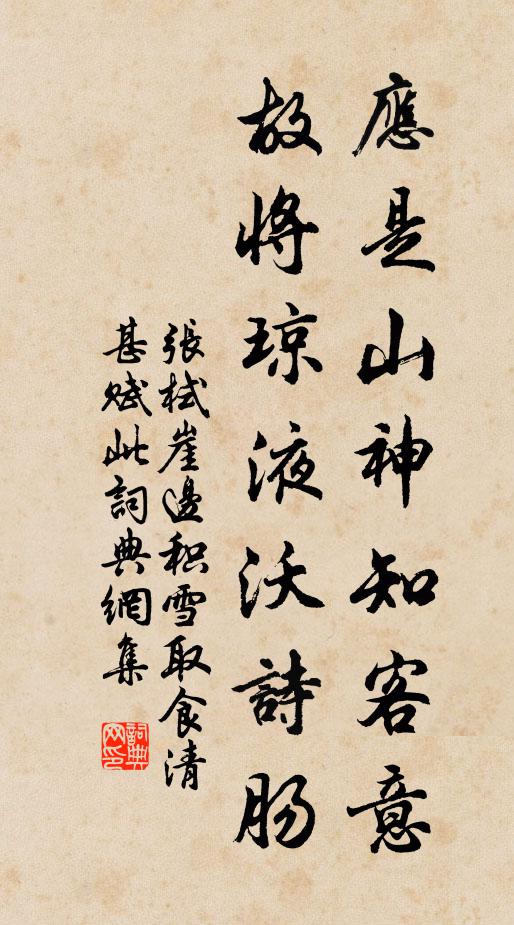 應是山神知客意
故將琼液沃詩肠
張栻崖邊积雪取食清
甚赋此詞典網集
詞典网印